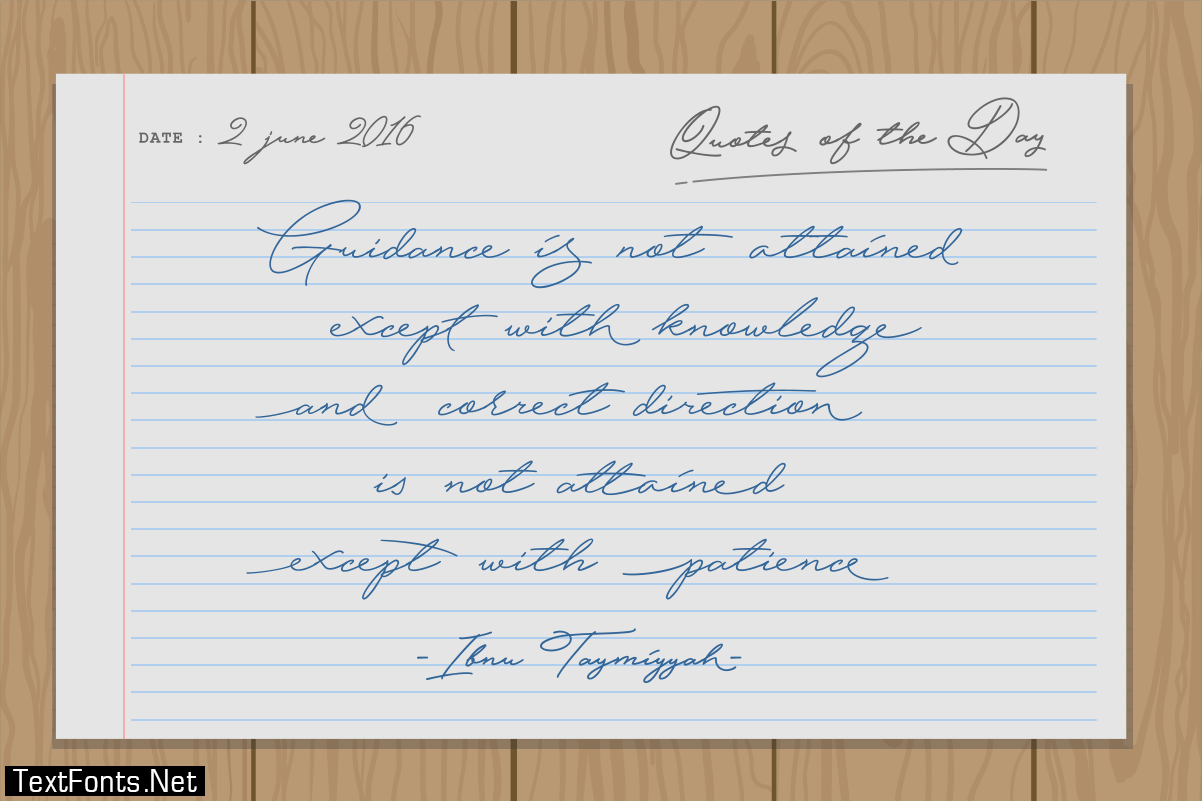 DATE : 2 june 2016
Quotes of the Day
Guidance is not attained
except with knowledge
and correct direction
is not attained
except with patience
-Ibnu Taymiyyah-
TextFonts.Net